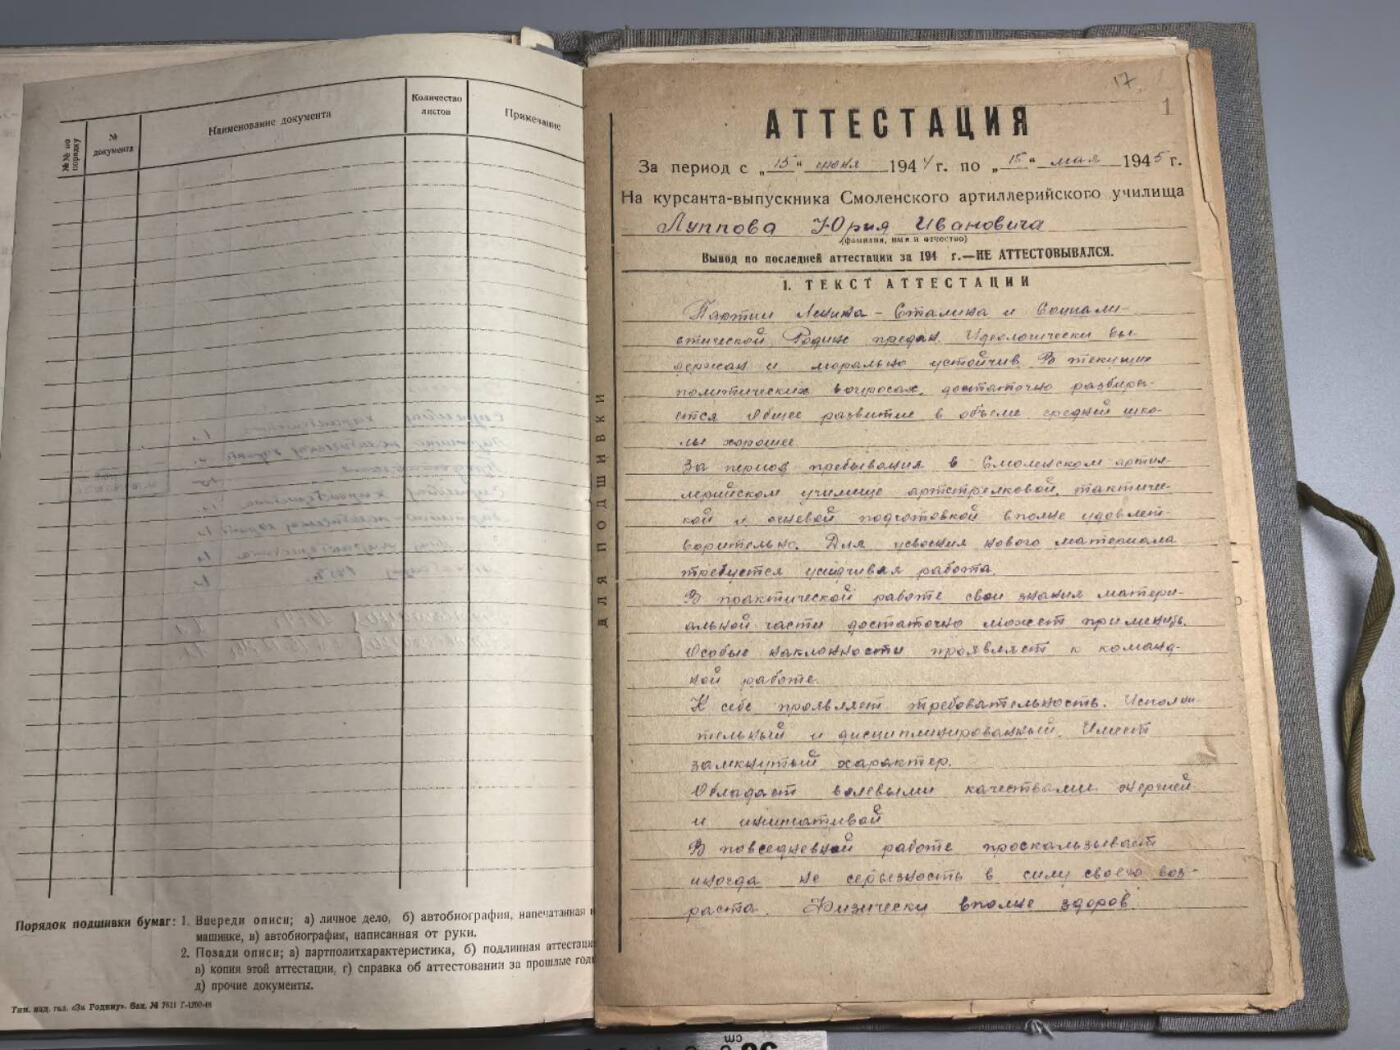 №№ по порядку
№ документа
Наименование документа
Количество листов
Примечание
Порядок подшивки бумаг: 1. Впереди описи; а) личное дело, б) автобиография, напечатанная н
машинке, в) автобиография, написанная от руки.
2. Позади описи; а) партполитхарактеристика, б) подлинная аттестаци
в) копия этой аттестации, г) справка об аттестовании за прошлые год
д) прочие документы.
Тип. изд. газ. «За Родину». Зак. № 7611 Г-1200-48
17
1
АТТЕСТАЦИЯ
За период с „15" июня 1944 г. по „15" мая 1945 г.
На курсанта-выпускника Смоленского артиллерийского училища
Луппова Юрия Ивановича
(фамилия, имя и отчество)
Вывод по последней аттестации за 194 г.—НЕ АТТЕСТОВЫВАЛСЯ.
I. ТЕКСТ АТТЕСТАЦИИ
ДЛЯ ПОДШИВКИ
Партии Ленина - Сталина и Социали-
стической Родине предан. Идеологически вы-
держан и морально устойчив. В текущих
политических вопросах, достаточно разбира-
ется. Общее развитие в объеме средней шко-
лы хорошее
За период пребывания в Смоленском артил-
лерийском училище артстрелковой, тактичес-
кой и огневой подготовкой вполне удовлет-
ворительно. Для усвоения нового материала
требуется усидчивая работа.
В практической работе свои знания матери-
альной части достаточно может применить.
Особые наклонности проявляет к команд-
ной работе.
К себе проявляет требовательность. Исполни-
тельный и дисциплинированный. Имеет
замкнутый характер.
Обладает волевыми качествами энергией
и инициативой
В повседневной работе проскальзывает
иногда не серьезность в силу своего воз-
раста. Физически вполне здоров.